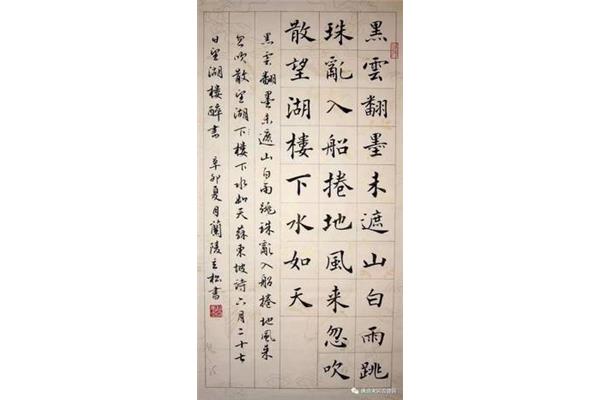 黑雲翻墨未遮山白雨跳
珠亂入船捲地風来忽吹
散望湖樓下水如天
黑雲翻墨未遮山白雨跳珠亂入船捲地風来
忽吹散望湖下樓下水如天蘇東坡詩六月二十七
日望湖樓醉書 辛卯夏月蘭陵立松書